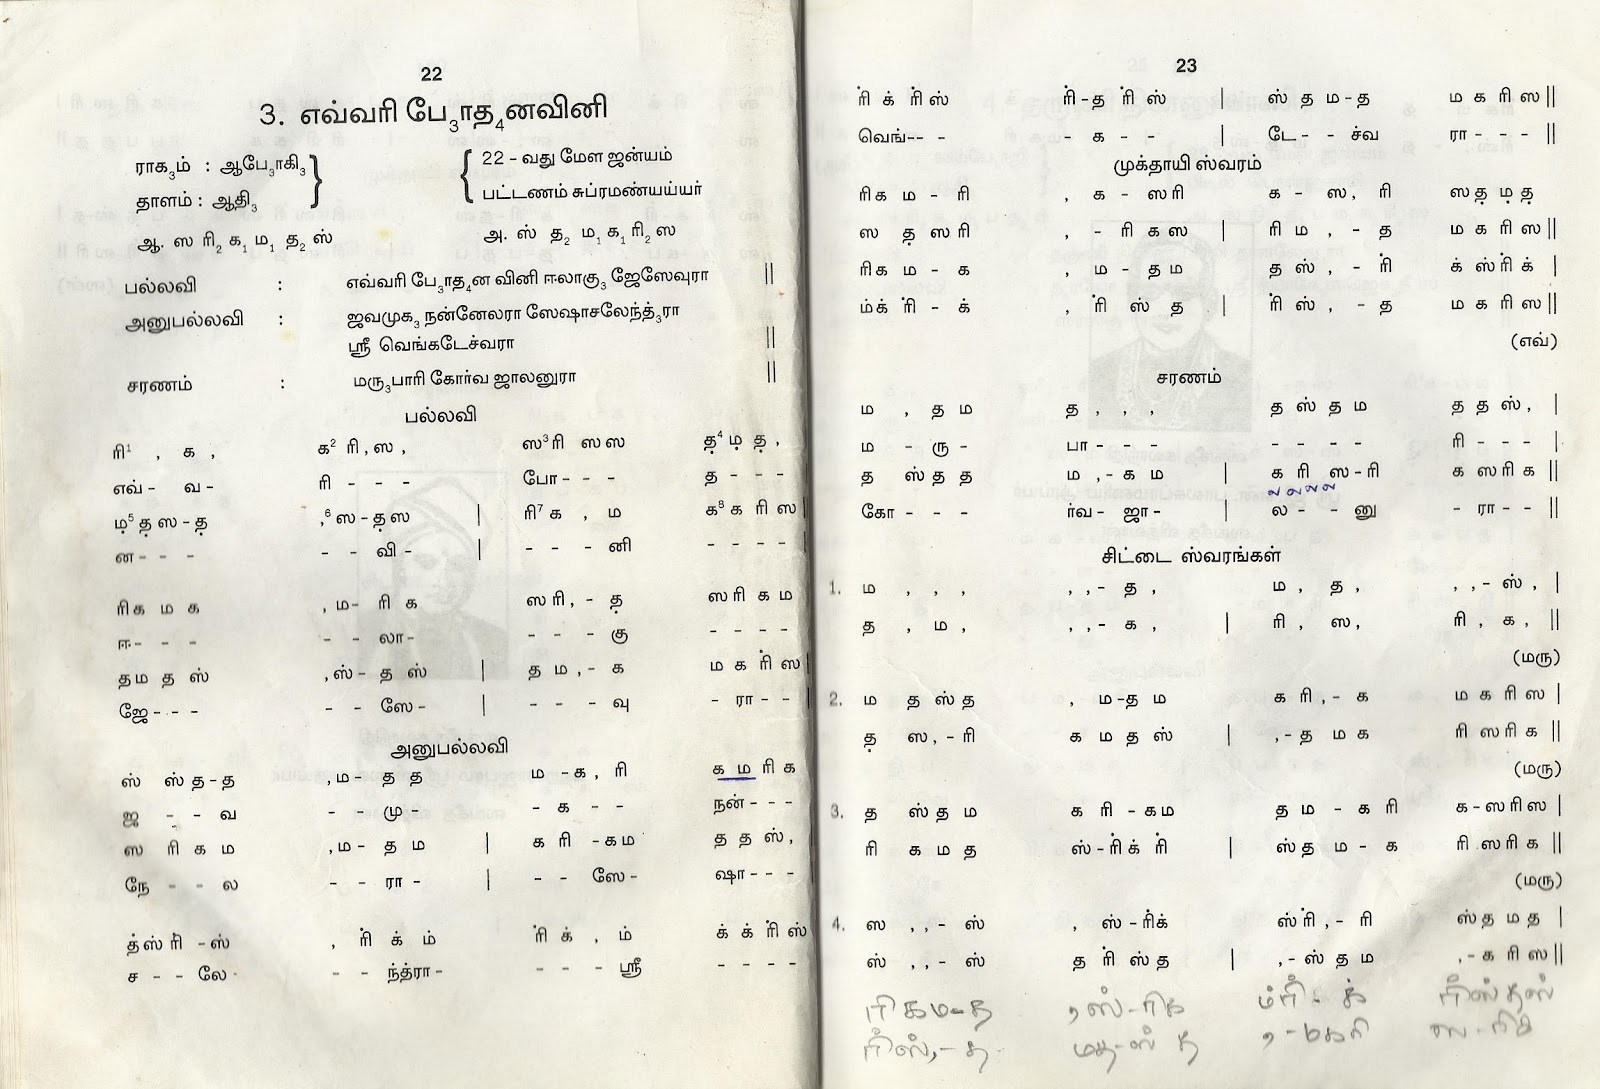 22
3. எவ்வரி பே₃ாத₄னவினி
ராக₃ம் : ஆபே₃ாகி₃ } { 22 - வது மேள ஜன்யம்
தாளம் : ஆதி₃ பட்டணம் சுப்ரமண்யய்யர்
ஆ. ஸ ரி₂ க₁ ம₁ த₂ ஸ் அ. ஸ் த₂ ம₁ க₁ ரி₂ ஸ
பல்லவி : எவ்வரி பே₃ாத₄ன வினி ஈலாகு₃ ஜேஸேவுரா ||
அனுபல்லவி : ஜவமுக₃ நன்னேலரா ஸேஷாசலேந்த்₃ரா
ஸ்ரீ வெங்கடேச்வரா ||
சரணம் : மரு₃பாரி கோர்வ ஜாலனுரா ||
பல்லவி
ரி¹ , க , க² ரி, ஸ , ஸ³ ரி ஸஸ த̣⁴ ம̣ த̣ ,
எவ் - வ - ரி - - - போ - - - த - - -
ம̣⁵ த̣ ஸ - த̣ ,⁶ ஸ - த̣ஸ | ரி⁷ க , ம க⁸ க ரி ஸ |
ன - - - - - வி - | - - - னி - - - - |
ரிக ம க , ம - ரி க ஸரி , - த̣ ஸ ரி க ம
ஈ - - - - - லா - - - - கு - - - -
தம தஸ் , ஸ் - த ஸ் | த ம , - க ம க ரி ஸ |
ஜே - - - - - ஸே - | - - - வு - ரா - - |
அனுபல்லவி
ஸ் ஸ்த - த , ம - த த ம - க , ரி க ம ரி க
ஜ - - வ - - மு - - க - - நன் - - -
ஸ ரி க ம , ம - த ம | க ரி - கம த த ஸ் ,
நே - - ல - - ரா - | - - ஸே - ஷா - - -
த்ஸ்ரி் - ஸ் , ரி் க் ம் ரி் க் , ம் க் க் ரி் ஸ்
ச - - லே - - - ந்த்ரா - - - - ஸ்ரீ - - - -
23
ரி் க் ரி்ஸ் ரி் - த ரி் ஸ் | ஸ் த ம - த ம க ரி ஸ ||
வெங் - - - - க - - | டே - - ச்வ ரா - - - ||
முக்தாயி ஸ்வரம்
ரிக ம - ரி , க - ஸரி க - ஸ , ரி ஸத̣ம̣த̣
ஸ த̣ ஸரி , - ரி கஸ | ரி ம , - த ம க ரி ஸ ||
ரிக ம - க , ம - தம தஸ் , - ரி் க் ஸ்ரி்க் |
ம்க் ரி் - க் , ரி் ஸ் த | ரி்ஸ் , - த ம க ரி ஸ ||
(எவ்)
சரணம்
ம , தம த , , , த ஸ் த ம த த ஸ் , |
ம - ரு - பா - - - - - - - ரி - - - |
த ஸ்த த ம , - க ம | க ரி ஸ - ரி க ஸரி க ||
கோ - - - ர்வ - ஜா - | ல - - னு - ரா - - ||
சிட்டை ஸ்வரங்கள்
1. ம , , , , , - த , ம , த , , , - ஸ் , |
த , ம , , , - க , | ரி , ஸ , ரி , க , ||
(மரு)
2. ம த ஸ்த , ம - தம கரி , - க ம க ரி ஸ |
த̣ ஸ , - ரி க ம தஸ் | , - த ம க ரிஸரிக ||
(மரு)
3. த ஸ்தம கரி - கம தம - கரி க - ஸரிஸ |
ரி கமத ஸ் - ரி்க் ரி் | ஸ்தம - க ரிஸரிக ||
(மரு)
4. ஸ , , - ஸ் , ஸ் - ரி்க் ஸ்ரி் , - ரி ஸ்தமத |
ஸ் , , - ஸ் தரி்ஸ்த | , - ஸ்தம , - கரிஸ ||
ரிகம - த , ஸ் - ரிக ம்ரி் - க் ரி்ஸ்தஸ்
ரி்ஸ் , - த மத - ஸ் த , - மகரி ஸ - ரிக